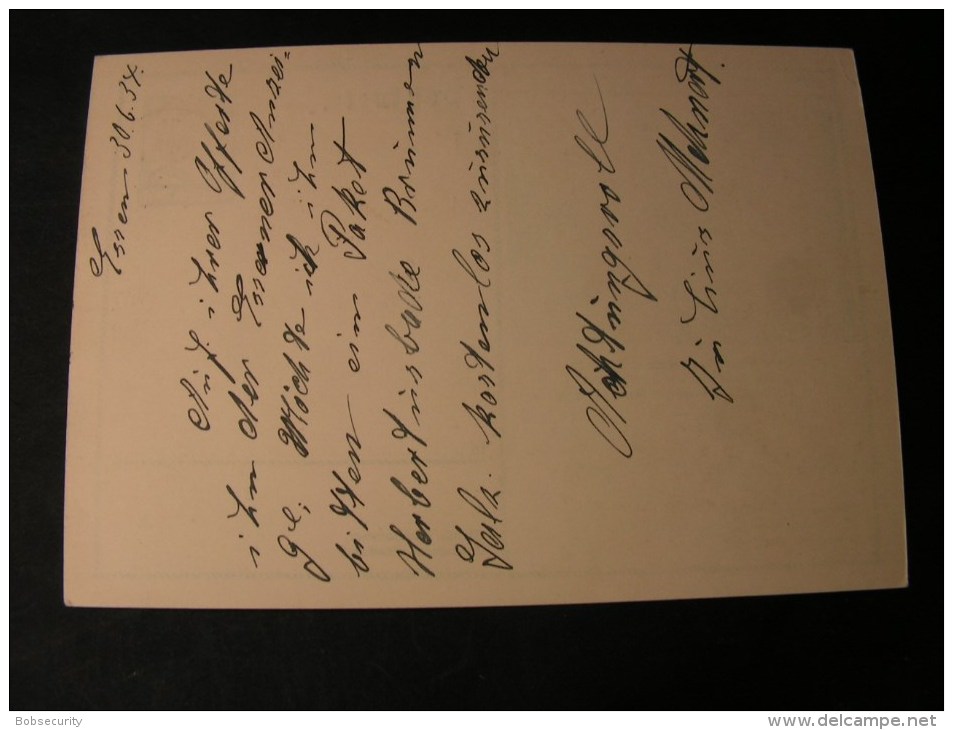 Essen 30.6.34.
Auf ihrer Offerte
ihn der Essener Anzei=
ge, Möchte ich ihn
bitten ein Paket
Herbertusbade Brunnen
kostenlos zusenden
Achtungsvoll
Mehnert.
Bobsecurity
www.delcampe.net